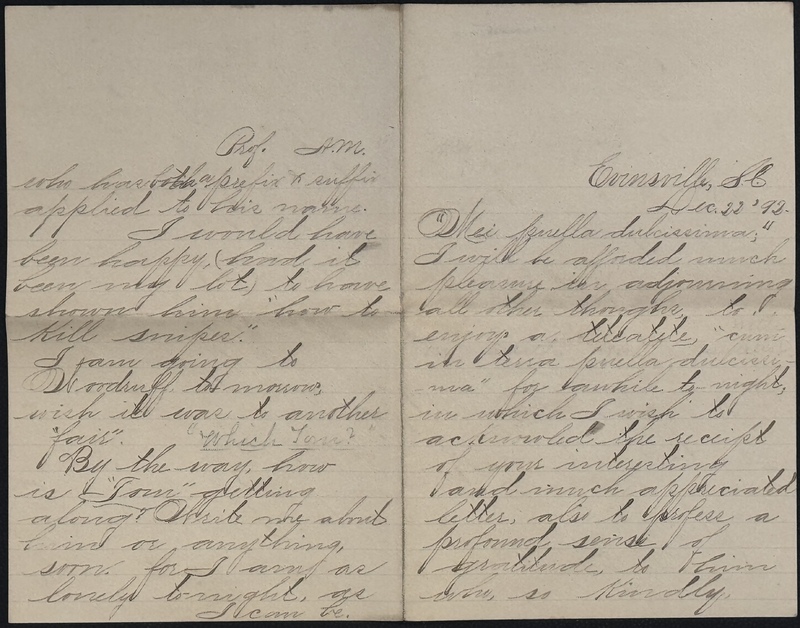 Evinsville, S.C
Dec. 22 '92.
"Mei puella dulcissima;"
I will be afforded much
pleasure in adjourning
all other thoughts, to
enjoy a tetatete, "cum
in terra puella dulcissi-
ma" for awhile to-night,
in which I wish to
acknowled the receipt
of your interesting
and much appreciated
letter, also to profess a
profound sense of
gratitude, to him
who, so kindly,
Prof. A.M.
who has both a prefix & suffix
applied to his name.
I would have
been happy, (had it
been my lot,) to have
shown him "how to
kill snipes."
I am going to
Woodruff to-morrow,
wish it was to another
"fair". "Which Tom?"
By the way, how
is "Tom" getting
along? Write me about
him or anything,
soon. for I am as
lonely to-night, as
I can be.